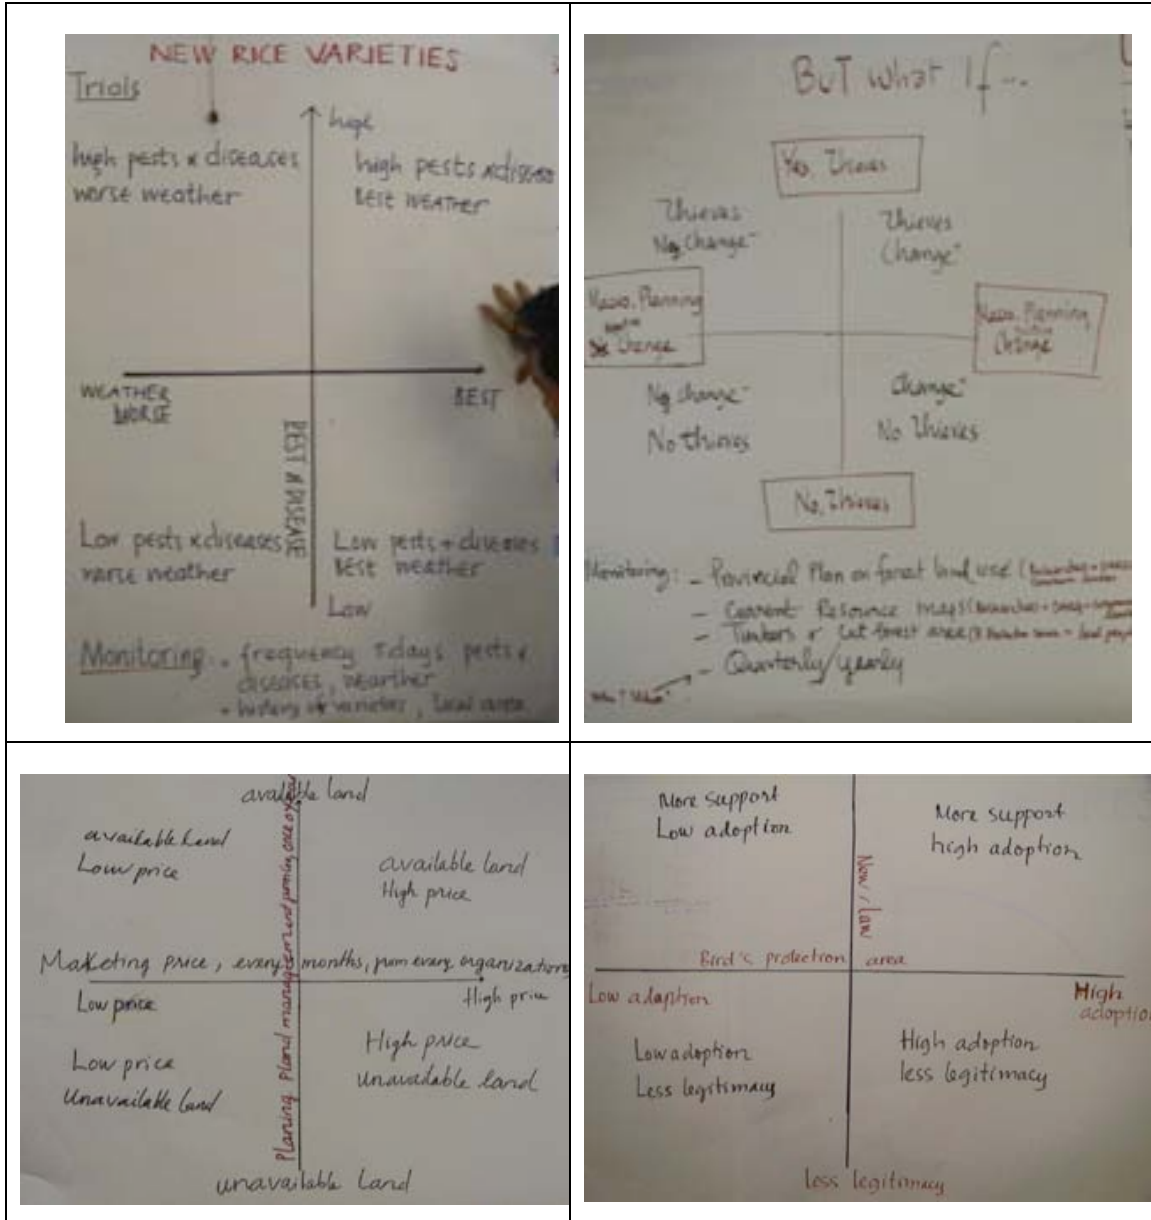 NEW RICE VARIETIES
Trials
high
high pests & diseases
worse weather
high pests & disease
BEST WEATHER
WEATHER
WORSE
BEST
PEST & DISEASE
Low pests & diseases
worse weather
Low pests + diseases
BEST weather
Low
Monitoring - frequency 5 days pests &
diseases, wearther
- history of varieties, local area
BUT what If ...
Yes, Thieves
Thieves
No change
Thieves
Change
Planning
Change
Planning
Change
No change
No thieves
Change
No Thieves
No, Thieves
Monitoring: - Provincial Plan on forest land use
- Current Resource maps
- Timbers & cut forest area
- Quarterly/yearly
available land
available land
Low price
available land
High price
Marketing price, every months, from every organization
Low price
High price
Low price
Unavailable land
High price
Unavailable land
unavailable Land
More support
Low adoption
More support
high adoption
New law
Bird's protection area
Low adaption
High
adoptio
Low adoption
Less legitimacy
High adoption
less legitimacy
less legitimacy